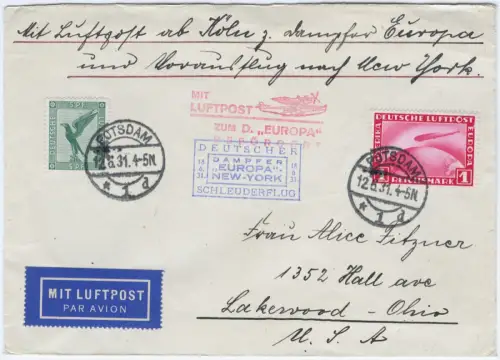 Mit Luftpost ab Köln z. Dampfer Europa
und Vorausflug nach New York.
MIT
LUFTPOST
ZUM D. „EUROPA“
BEFÖRDERT
DEUTSCHER
DAMPFER
„EUROPA“-
NEW-YORK
SCHLEUDERFLUG
POTSDAM
12.6.31.4-5N.
* 1 d
DEUTSCHE LUFTPOST
EUROPA
1 REICHSMARK 1
POTSDAM
12.6.31.4-5N.
* 1 d
Frau Alice Fitzner
1352 Hall ave
Lakewood - Ohio
U. S. A
MIT LUFTPOST
PAR AVION